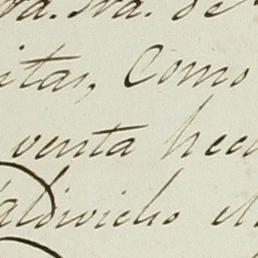 Sra. de
itas, Como
venta hec
aldivieso el